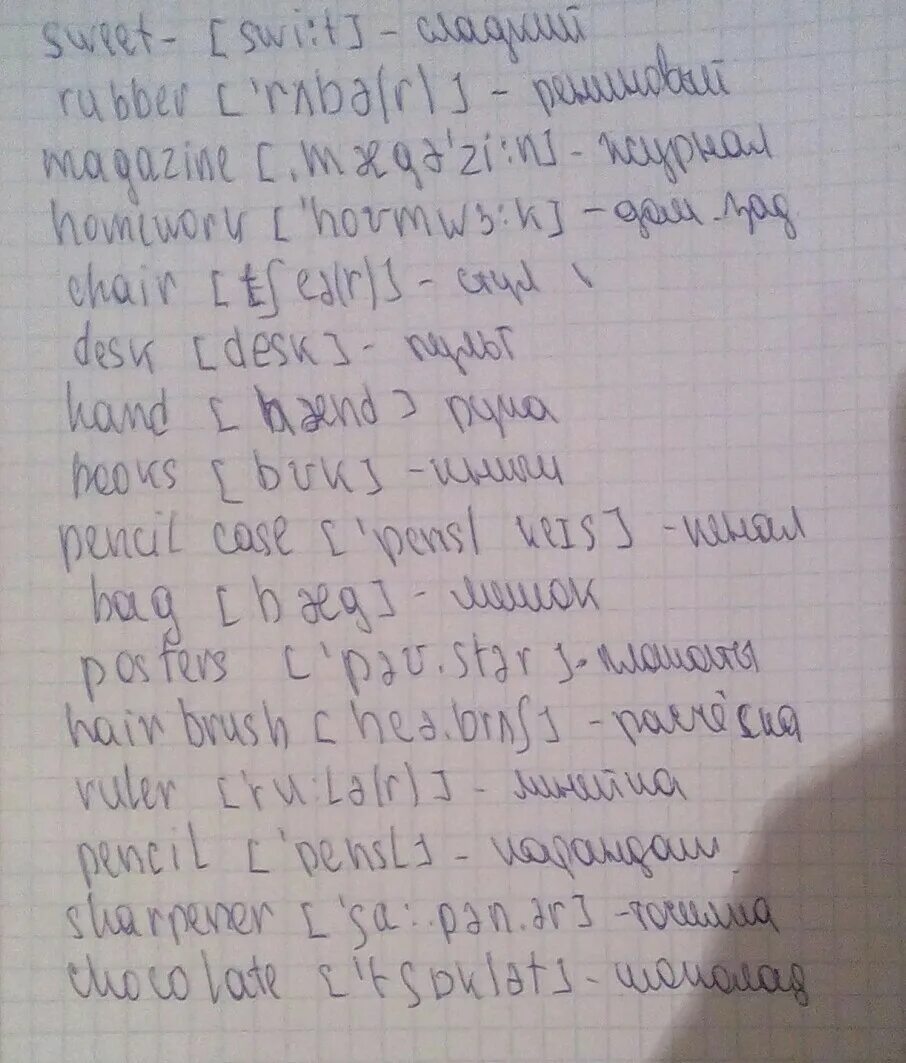 sweet - [swi:t] - сладкий
rubber ['rʌbə(r)] - резиновый
magazine [ˌmægə'zi:n] - журнал
homework ['hoʊmwɜ:k] - дом. зад.
chair [tʃeə(r)] - стул
desk [desk] - пульт
hand [hænd] рука
books [bʊk] - книги
pencil case ['pensl keɪs] - пенал
bag [bæg] - мешок
posters ['pəʊ.stər] - плакаты
hair brush [heə.brʌʃ] - расчёска
ruler ['ru:lə(r)] - линейка
pencil ['pensl] - карандаш
sharpener ['ʃɑ:.pən.ər] - точилка
chocolate ['tʃɒklət] - шоколад